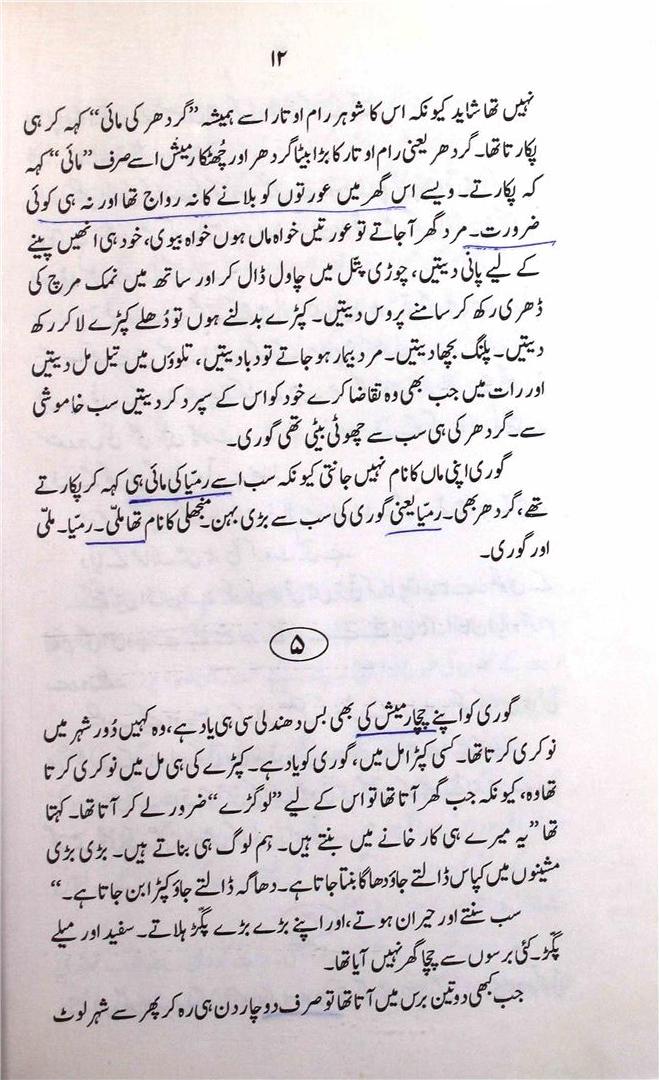 ۱۲
نہیں تھا شاید کیونکہ اس کا شوہر رام اوتار اسے ہمیشہ ”گردھر کی مائی“ کہہ کر ہی
پکارتا تھا۔ گردھر یعنی رام اوتار کا بڑا بیٹا گردھر اور چُھٹکا رمیش اسے صرف ”مائی“ کہہ
کہ پکارتے۔ ویسے اس گھر میں عورتوں کو بلانے کا نہ رواج تھا اور نہ ہی کوئی
ضرورت۔ مرد گھر آجاتے تو عورتیں خواہ ماں ہوں خواہ بیوی، خود ہی انھیں پینے
کے لیے پانی دیتیں، چوڑی پتّل میں چاول ڈال کر اور ساتھ میں نمک مرچ کی
ڈھری رکھ کر سامنے پروس دیتیں۔ کپڑے بدلنے ہوں تو دُھلے کپڑے لا کر رکھ
دیتیں۔ پلنگ بچھا دیتیں۔ مرد بیمار ہو جاتے تو دبا دیتیں، تلوؤں میں تیل مل دیتیں
اور رات میں جب بھی وہ تقاضا کرے خود کو اس کے سپرد کر دیتیں سب خاموشی
سے۔ گردھر کی ہی سب سے چھوٹی بیٹی تھی گوری۔
گوری اپنی ماں کا نام نہیں جانتی کیونکہ سب اسے رمیّا کی مائی ہی کہہ کر پکارتے
تھے، گردھر بھی۔ رمیّا یعنی گوری کی سب سے بڑی بہن۔ منجھلی کا نام تھا ملّی۔ رمیا۔ ملّی
اور گوری۔
۵
گوری کو اپنے چچا رمیش کی بھی بس دھندلی سی ہی یاد ہے، وہ کہیں دُور شہر میں
نوکری کرتا تھا۔ کسی کپڑا مل میں، گوری کو یاد ہے۔ کپڑے کی ہی مل میں نوکری کرتا
تھا وہ، کیونکہ جب گھر آتا تھا تو اس کے لیے ”لوگڑے“ ضرور لے کر آتا تھا۔ کہتا
تھا ”یہ میرے ہی کارخانے میں بنتے ہیں۔ ہم لوگ ہی بناتے ہیں۔ بڑی بڑی
مشینوں میں کپاس ڈالتے جاؤ دھاگا بنتا جاتا ہے۔ دھاگہ ڈالتے جاؤ کپڑا بن جاتا ہے۔“
سب سنتے اور حیران ہوتے، اور اپنے بڑے بڑے پگڑ ہلاتے۔ سفید اور میلے
پگڑ۔ کئی برسوں سے چچا گھر نہیں آیا تھا۔
جب کبھی دو تین برس میں آتا تھا تو صرف دو چار دن ہی رہ کر پھر سے شہر لوٹ